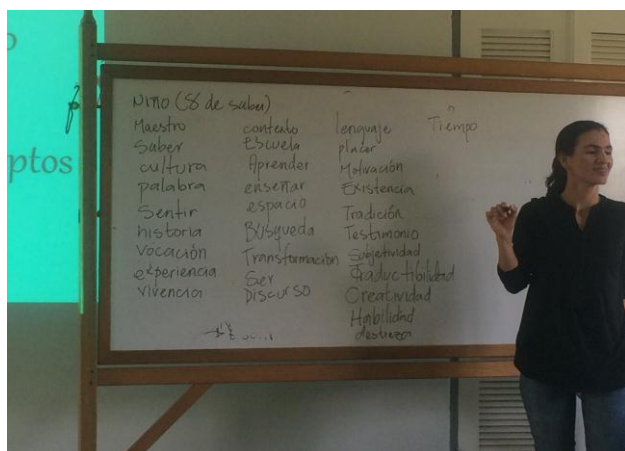 ptos
Niño (S de saber)
Maestro
Saber
cultura
palabra
Sentir
historia
Vocación
experiencia
vivencia
contexto
Escuela
Aprender
enseñar
espacio
Búsqueda
Transformación
Ser
Discurso
lenguaje
placer
Motivación
Existencia
Tradición
Testimonio
Subjetividad
Traductibilidad
Creatividad
Habilidad
destreza
Tiempo